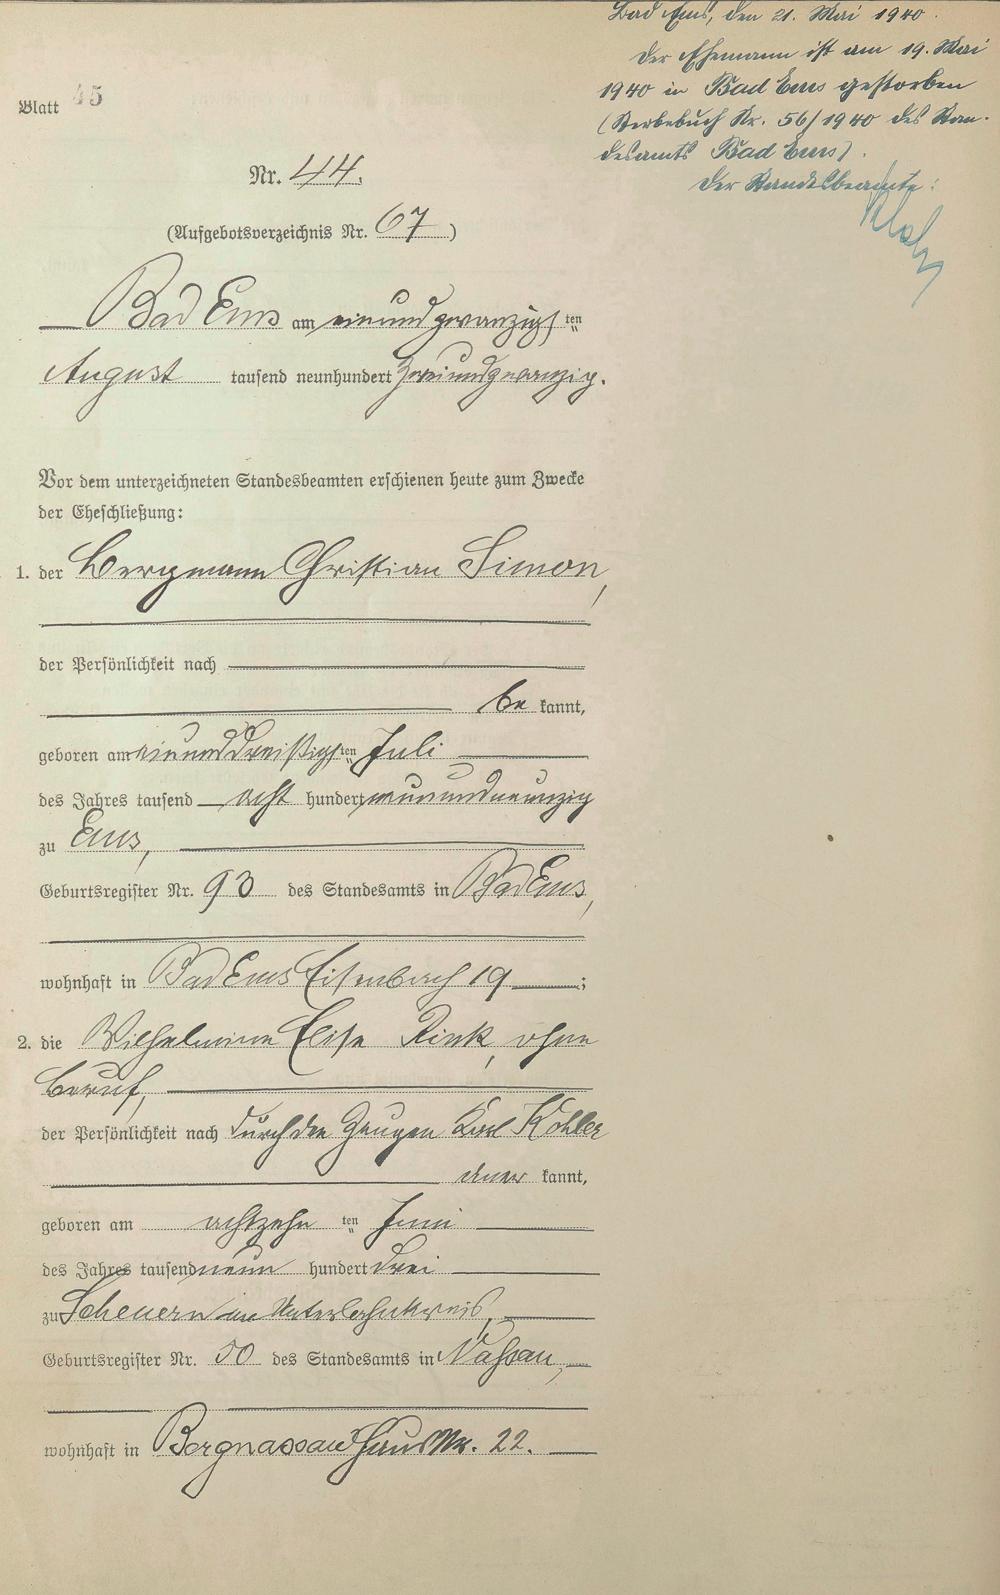 Bad Ems, den 21. Mai 1940.
Der Ehemann ist am 19. Mai
1940 in Bad Ems gestorben
(Sterbebuch Nr. 56/1940 des Stan-
desamts Bad Ems).
Der Standesbeamte:
Blatt 45
Nr. 44.
(Aufgebotsverzeichnis Nr. 67)
Bad Ems am einundzwanzigsten
August tausend neunhundert zweiundzwanzig.
Vor dem unterzeichneten Standesbeamten erschienen heute zum Zwecke
der Eheschließung:
1. der Bergmann Christian Simon,
der Persönlichkeit nach
be kannt,
geboren am einunddreißigsten Juli
des Jahres tausend acht hundert neunundneunzig
zu Ems,
Geburtsregister Nr. 93 des Standesamts in Bad Ems,
wohnhaft in Bad Ems Eisenbach 19;
2. die Wilhelmine Elise Rink, ohne
Beruf,
der Persönlichkeit nach durch den Zeugen Karl Köhler
aner kannt,
geboren am achtzehnten Juni
des Jahres tausend neun hundert drei
zu Scheuern im Unterlahnkreis,
Geburtsregister Nr. 50 des Standesamts in Nassau,
wohnhaft in Bergnassau Haus Nr. 22.